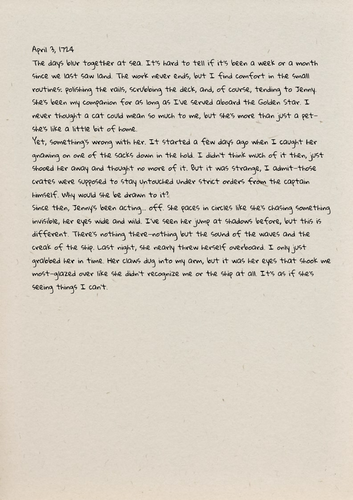 April 3, 1724
The days blur together at sea. It's hard to tell if it's been a week or a month
since we last saw land. The work never ends, but I find comfort in the small
routines: polishing the rails, scrubbing the deck, and, of course, tending to Jenny.
She's been my companion for as long as I've served aboard the Golden Star. I
never thought a cat could mean so much to me, but she's more than just a pet-
she's like a little bit of home.
Yet, something's wrong with her. It started a few days ago when I caught her
gnawing on one of the sacks down in the hold. I didn't think much of it then, just
shooed her away and thought no more of it. But it was strange, I admit-those
crates were supposed to stay untouched under strict orders from the captain
himself. Why would she be drawn to it?
Since then, Jenny's been acting... off. She paces in circles like she's chasing something
invisible, her eyes wide and wild. I've seen her jump at shadows before, but this is
different. There's nothing there-nothing but the sound of the waves and the
creak of the ship. Last night, she nearly threw herself overboard. I only just
grabbed her in time. Her claws dug into my arm, but it was her eyes that shook me
most-glazed over like she didn't recognize me or the ship at all. It's as if she's
seeing things I can't.